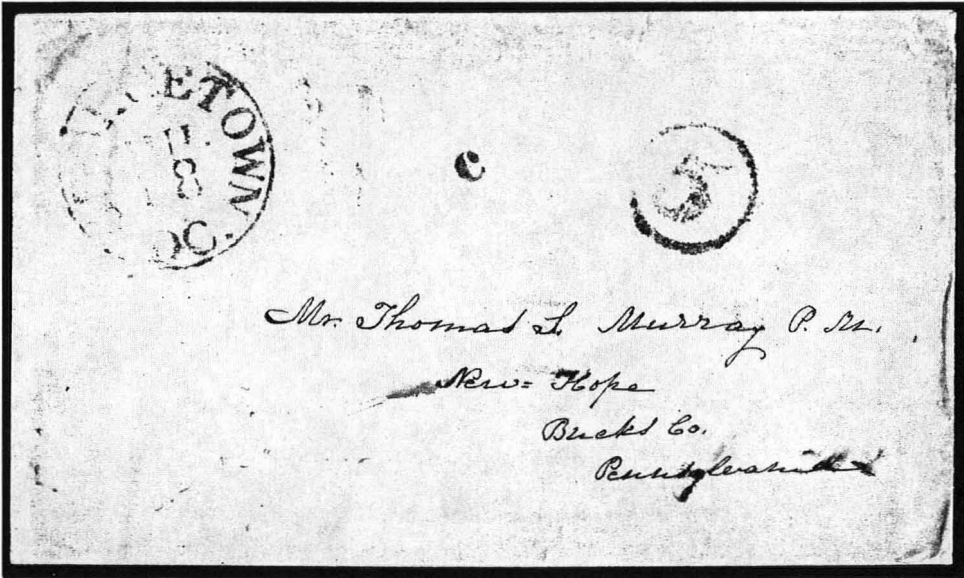 GEORGETOWN.
DC.
8
c
5
Mr. Thomas L. Murray P. M.
New= Hope
Bucks Co.
Pennsylvania